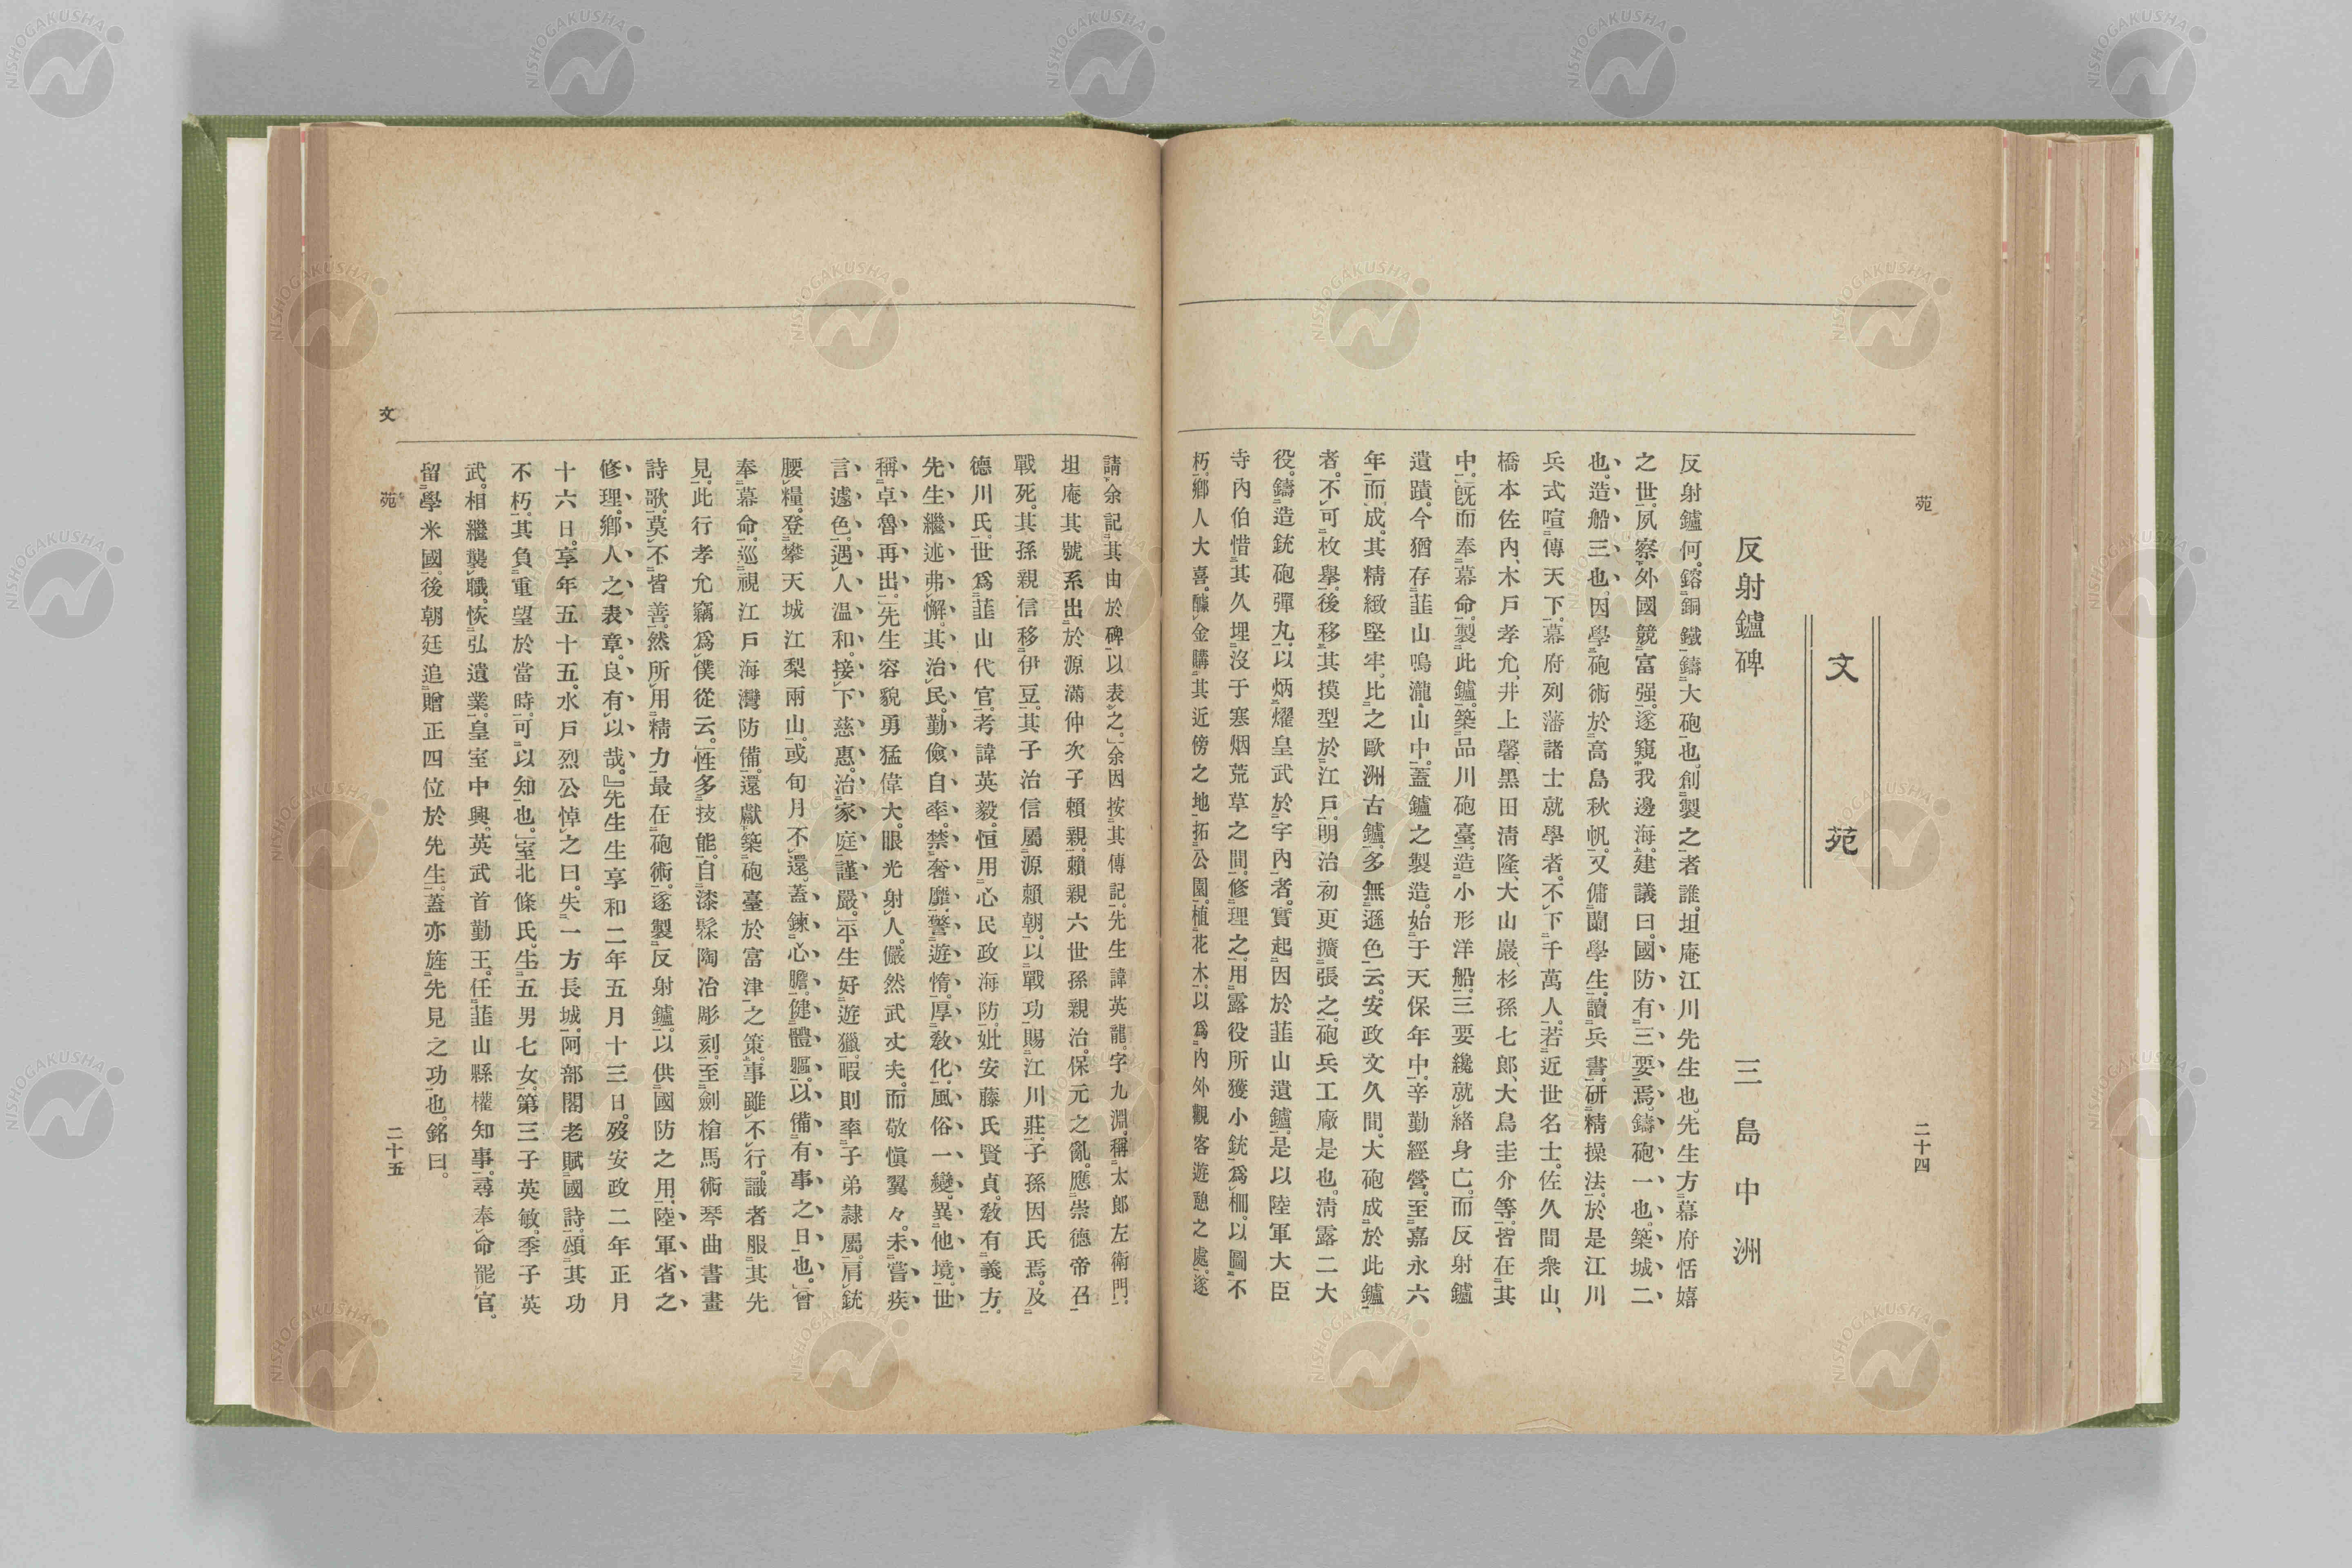 苑
二十四
文苑
反射鑪碑　三島中洲
反射鑪何。鎔銅鐵鑄大砲也。創製之者誰。坦庵江川先生也。先生方幕府恬嬉
之世。夙察外國競富强。遂窺我邊海。建議曰。國防有三要焉。鑄砲一也。築城二
也。造船三也。因學砲術於高島秋帆。又傭蘭學生。讀兵書。研精操法。於是江川
兵式喧傳天下。幕府列藩諸士就學者。不下千萬人。若近世名士。佐久間衆山、
橋本佐內、木戶孝允、井上馨、黑田淸隆、大山巖、杉孫七郞、大鳥圭介等。皆在其
中。旣而奉幕命。製此鑪。築品川砲臺。造小形洋船。三要纔就緖身亡。而反射鑪
遺蹟。今猶存韮山鳴瀧山中。蓋鑪之製造。始于天保年中。辛勤經營。至嘉永六
年而成。其精緻堅牢。比之歐洲古鑪。多無遜色云。安政文久間。大砲成於此鑪
者。不可枚擧。後移其摸型於江戶。明治初更擴張之。砲兵工廠是也。淸露二大
役。鑄造銃砲彈丸。以炳燿皇武於宇內者。實起因於韮山遺鑪。是以陸軍大臣
寺內伯惜其久埋沒于寒烟荒草之間。修理之。用露役所獲小銃爲柵。以圖不
朽。鄕人大喜。醵金購其近傍之地。拓公園。植花木。以爲內外觀客遊憩之處。遂
請余記其由於碑以表之。余因按其傳記。先生諱英龍。字九淵。稱太郞左衛門。
坦庵其號系出於源滿仲次子賴親。賴親六世孫親治。保元之亂。應崇德帝召
戰死。其孫親信移伊豆。其子治信屬源賴朝。以戰功賜江川莊。子孫因氏焉。及
德川氏。世爲韮山代官。考諱英毅。恒用心民政海防。妣安藤氏賢貞。敎有義方。
先生繼述弗懈。其治民。勤儉自率。禁奢靡。警遊惰。厚敎化。風俗一變。異他境。世
稱卓魯再出。先生容貌勇猛偉大。眼光射人。儼然武丈夫。而敬愼翼々。未嘗疾
言遽色。遇人温和。接下慈惠。治家庭謹嚴。平生好遊獵。暇則率子弟隷屬。肩銃
腰糧。登攀天城江梨兩山。或旬月不還。蓋鍊心膽。健體軀。以備有事之日也。曾
奉幕命。巡視江戶海灣防備。還獻築砲臺於富津之策。事雖不行。識者服其先
見。此行孝允竊爲僕從云。性多技能。自漆髹陶冶彫刻。至劍槍馬術琴曲書畫
詩歌。莫不皆善。然所用精力。最在砲術。遂製反射鑪。以供國防之用。陸軍省之
修理。鄕人之表章。良有以哉。』先生生享和二年五月十三日。歿安政二年正月
十六日。享年五十五。水戶烈公悼之曰。失一方長城。阿部閣老賦國詩。頌其功
不朽。其負重望於當時。可以知也。室北條氏。生五男七女。第三子英敏。季子英
武。相繼襲職。恢弘遺業。皇室中興。英武首勤王。任韮山縣權知事。尋奉命罷官。
留學米國。後朝廷追贈正四位於先生。蓋亦旌先見之功也。銘曰。
文苑
二十五
NISHOGAKUSHA